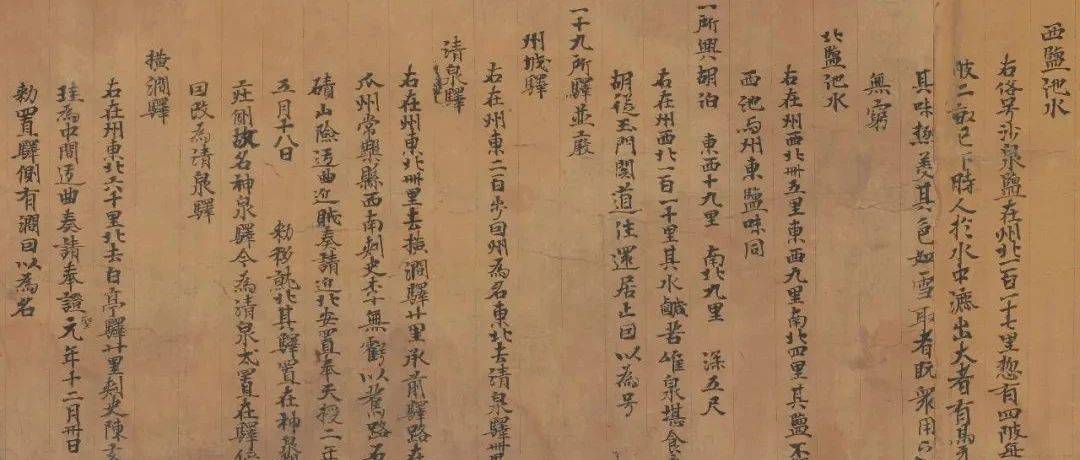 西鹽池水
右俗号沙泉鹽在州北一百一十七里惣有四陂每
陂二畝已下時人於水中漉出大者有馬牙
其味極美其色如雪取者既衆用之
無窮
北鹽池水
右在州西北卌五里東西九里南北四里其鹽不
西池与州東鹽味同
一所興胡泊 東西十九里 南北九里 深五尺
右在州西北一百一十里其水鹹苦唯泉堪食
胡從玉門關道往還居止因以為号
一十九所驛並廢
州城驛
右在州東二百步因州為名東北去清泉驛卌
清泉驛
右在州東北卌里去橫澗驛廿里承前驛路在
瓜州常樂縣西南刺史李無虧以舊路石
磧山險迂曲近賊奏請近北安置奉天授二年
五月十八日 勑移就北其驛置在神泉
庄側故名神泉驛今為清泉戍置在驛傍
因改為清泉驛
橫澗驛
右在州東北六十里北去白亭驛廿里刺史陳玄
珪為中間迂曲奏請奉證聖元年十二月卅日
勑置驛側有澗因以為名